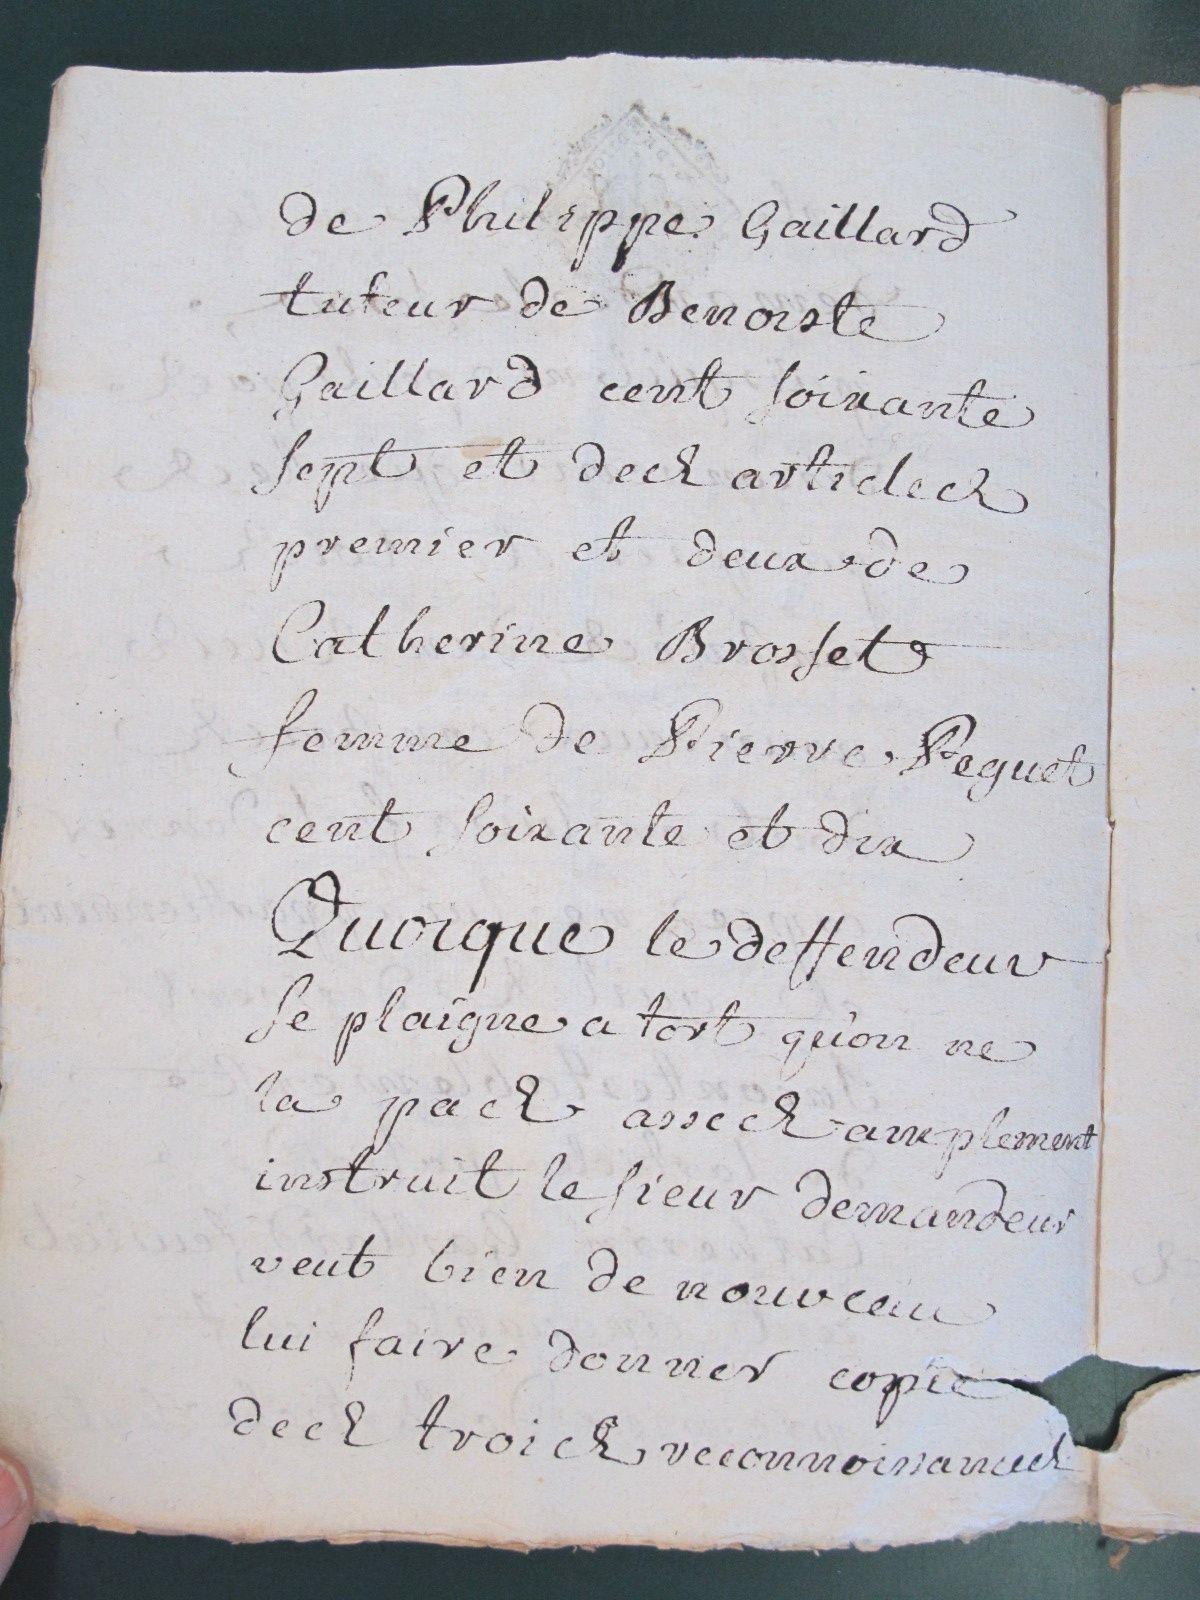 de Philippe Gaillard
tuteur de Benoiste
Gaillard cent soixante
sept et des articles
premier et deux de
Catherine Brosset
femme de Pierre Peguet
cent soixante et dix
Quoique le deffendeur
se plaigne a tort qu'on ne
la pas asses amplement
instruit le sieur demandeur
veut bien de nouveau
lui faire donner copie
des trois reconnoissances